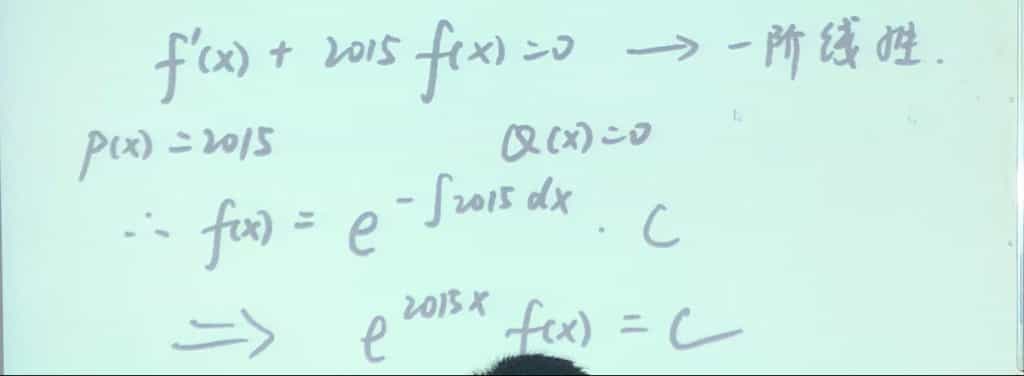 f'(x) + 2015 f(x) = 0 → 一阶线性.
P(x) = 2015 Q(x) = 0
∴ f(x) = e^{-∫2015 dx} · C
⇒ e^{2015x} f(x) = C